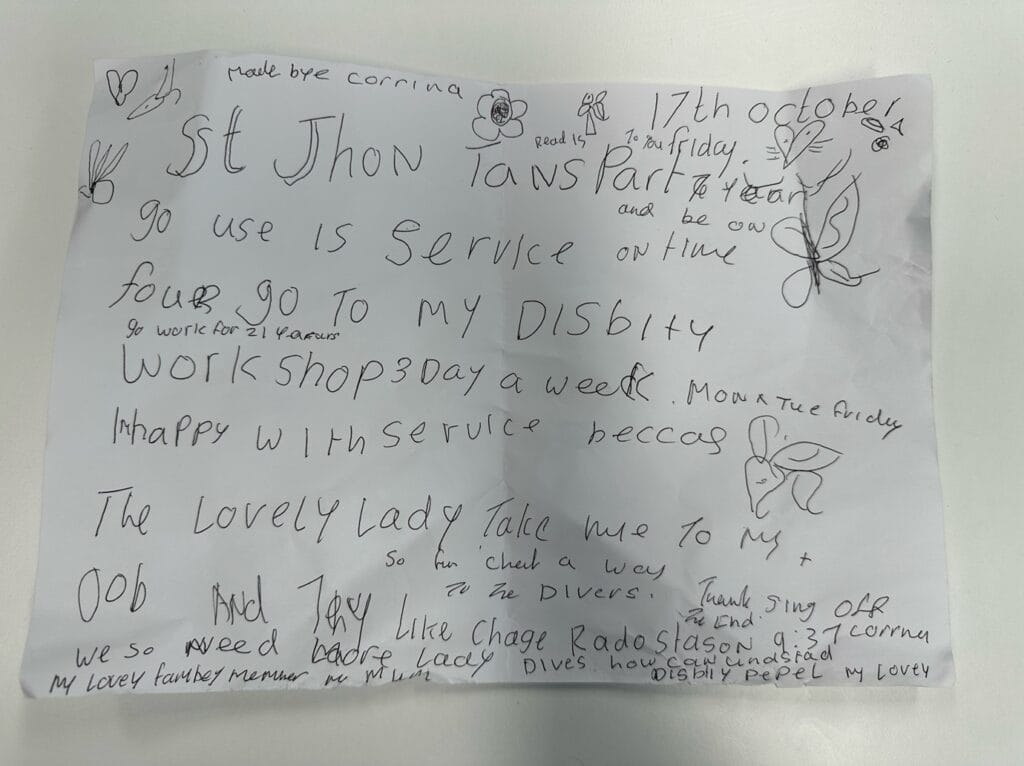 Made bye corrina
17th october
Read is To You friday.
St Jhon TansPart To Year
and be on
go use is Service on time
four go To my DISbity
go work for 21 years
work shop 3 Day a week. Mon x Tue friday
Inhappy with service beccas
The Lovely Lady Take me to my
so fun chat a way
Oob And They Like Chage Rado Stason 9:37 corrina
To The Divers. Thank sing off
The End.
we so need Ladre Lady Dives how can undstad
my Lovey fambey memner my Mum Disbliy pepel my Lovey